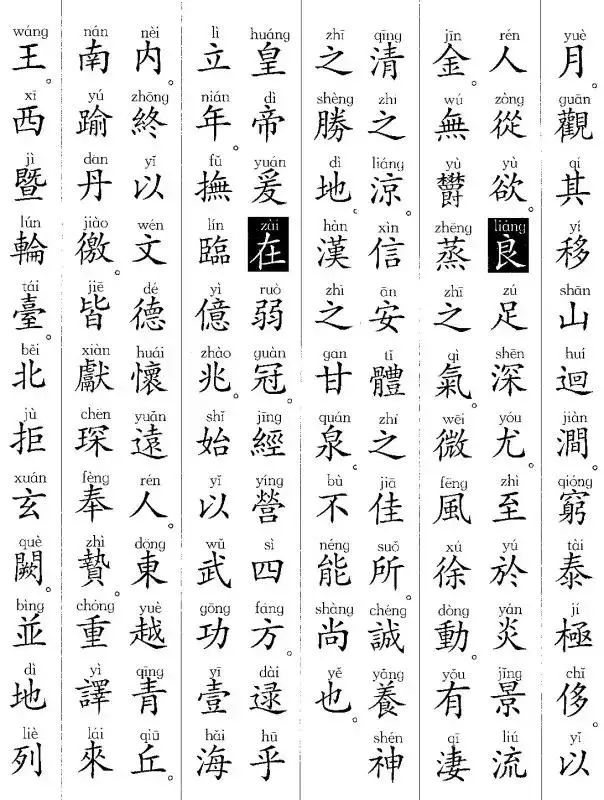 yuè guān qí yí shān huí jiàn qióng tài jí chǐ yǐ
月。觀其移山迴澗窮泰極侈。以
rén zòng yù liáng zú shēn yóu zhì yú yán jǐng liú
人從欲良足深尤至於炎景流
jīn wú yù zhēng zhī qì wēi fēng xú dòng yǒu qī
金。無鬱蒸之氣。微風徐動。有淒
qīng zhī liáng xìn ān tǐ zhī jiā suǒ chéng yǎng shén
清之涼。信安體之佳所誠養神
zhī shèng dì hàn zhī gan quán bù néng shàng yě
之勝地。漢之甘泉。不能尚也。
huáng dì yuán zài ruò guàn jīng yíng sì fāng dài hū
皇帝爰在弱冠。經營四方。逮乎
lì nián fǔ lín yì zhào shǐ yǐ wǔ gōng yī hǎi
立年。撫臨億兆。始以武功壹海
nèi zhōng yǐ wén dé huái yuǎn rén dōng yuè qīng qiū
内。終以文德懷遠人。東越青丘。
nán yú dan jiào jiē xiàn chēn fèng zhì chóng yì lái
南踰丹徼。皆獻琛奉贄重譯來
wáng xī jì lún tái běi jù xuán què bìng dì liè
王。西暨輪臺。北拒玄闕。並地列